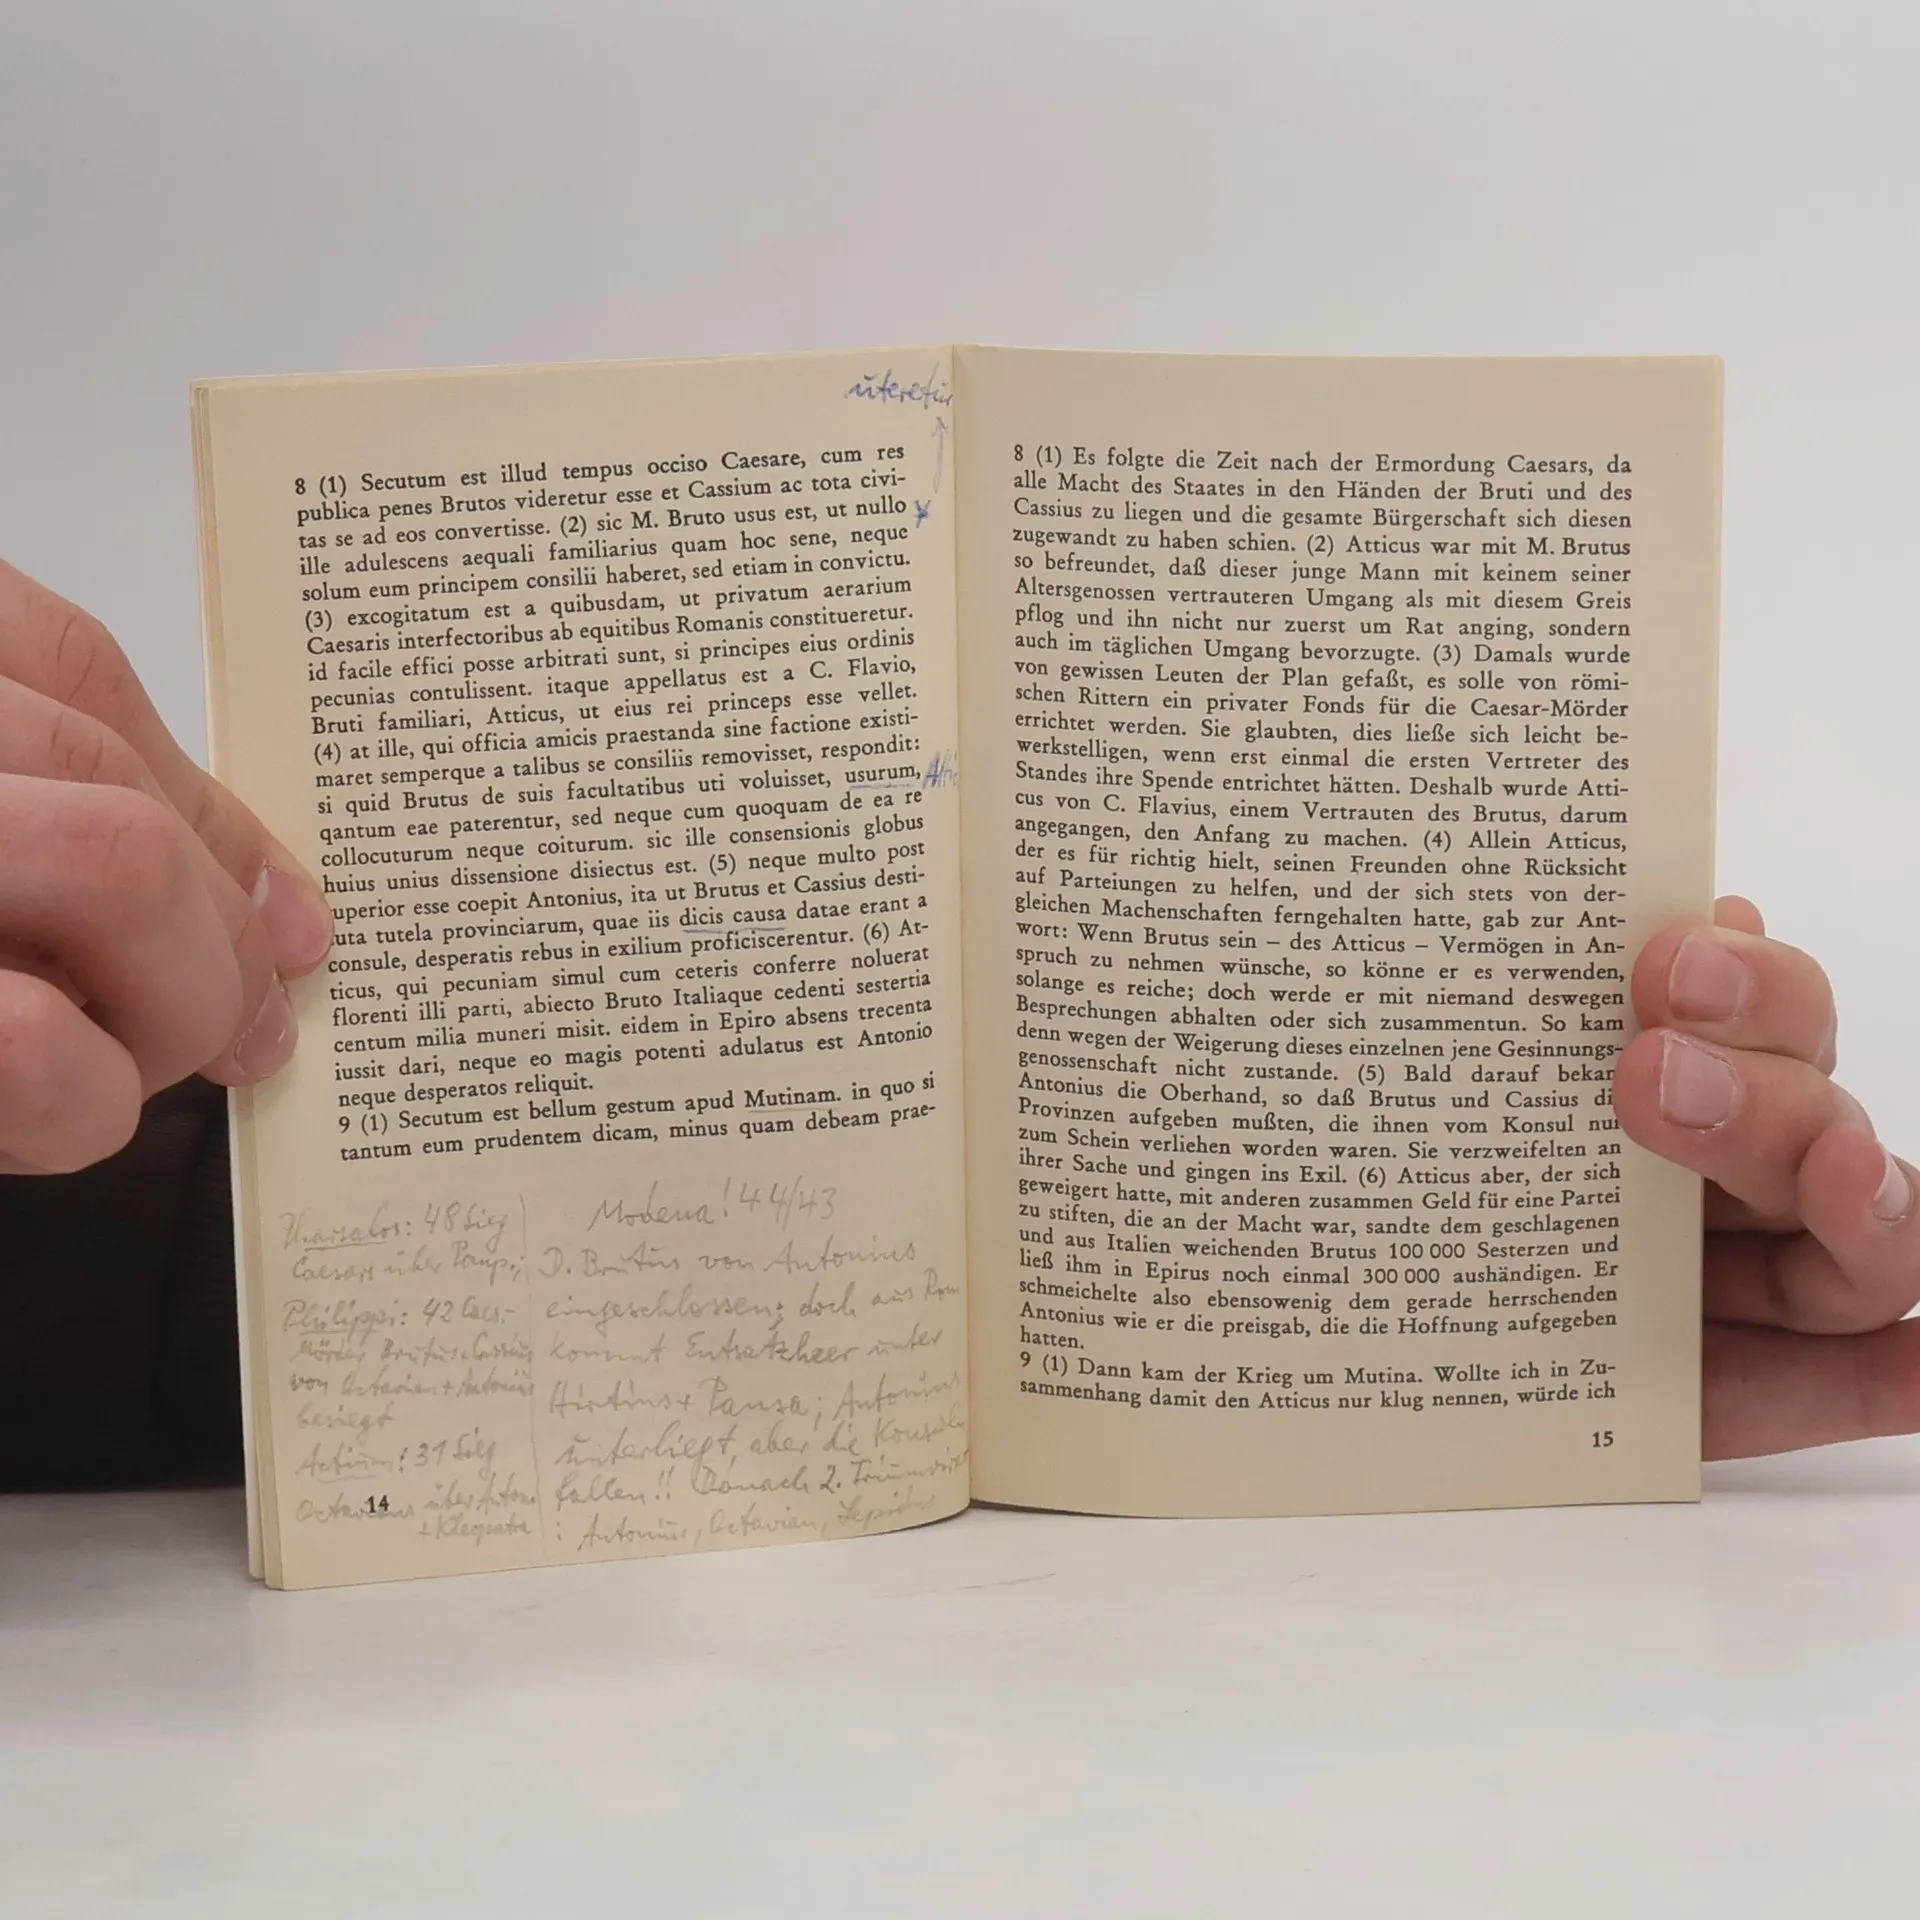 uteretur
8 (1) Secutum est illud tempus occiso Caesare, cum res
publica penes Brutos videretur esse et Cassium ac tota civi-
tas se ad eos convertisse. (2) sic M. Bruto usus est, ut nullo
ille adulescens aequali familiarius quam hoc sene, neque
solum eum principem consilii haberet, sed etiam in convictu.
(3) excogitatum est a quibusdam, ut privatum aerarium
Caesaris interfectoribus ab equitibus Romanis constitueretur.
id facile effici posse arbitrati sunt, si principes eius ordinis
pecunias contulissent. itaque appellatus est a C. Flavio,
Bruti familiari, Atticus, ut eius rei princeps esse vellet.
(4) at ille, qui officia amicis praestanda sine factione existi-
maret semperque a talibus se consiliis removisset, respondit:
si quid Brutus de suis facultatibus uti voluisset, usurum,
qantum eae paterentur, sed neque cum quoquam de ea re
collocuturum neque coiturum. sic ille consensionis globus
huius unius dissensione disiectus est. (5) neque multo post
uperior esse coepit Antonius, ita ut Brutus et Cassius desti-
uta tutela provinciarum, quae iis dicis causa datae erant a
consule, desperatis rebus in exilium proficiscerentur. (6) At-
ticus, qui pecuniam simul cum ceteris conferre noluerat
florenti illi parti, abiecto Bruto Italiaque cedenti sestertia
centum milia muneri misit. eidem in Epiro absens trecenta
iussit dari, neque eo magis potenti adulatus est Antonio
neque desperatos reliquit.
9 (1) Secutum est bellum gestum apud Mutinam. in quo si
tantum eum prudentem dicam, minus quam debeam prae-
Pharsalos: 48 Sieg
Caesars über Pomp.;
Philippi: 42 Caes.-
Mörder Brutus + Cassius
von Octavian + Antonius
besiegt
Actium: 31 Sieg
Octavians über Anton.
+ Kleopatra
Modena! 44/43
D. Brutus von Antonius
eingeschlossen; doch aus Rom
kommt Entsatzheer unter
Hirtius + Pansa; Antonius
unterliegt, aber die Konsuln
fallen!! Danach 2. Triumvirat
: Antonius, Octavian, Lepidus
14
8 (1) Es folgte die Zeit nach der Ermordung Caesars, da
alle Macht des Staates in den Händen der Bruti und des
Cassius zu liegen und die gesamte Bürgerschaft sich diesen
zugewandt zu haben schien. (2) Atticus war mit M. Brutus
so befreundet, daß dieser junge Mann mit keinem seiner
Altersgenossen vertrauteren Umgang als mit diesem Greis
pflog und ihn nicht nur zuerst um Rat anging, sondern
auch im täglichen Umgang bevorzugte. (3) Damals wurde
von gewissen Leuten der Plan gefaßt, es solle von römi-
schen Rittern ein privater Fonds für die Caesar-Mörder
errichtet werden. Sie glaubten, dies ließe sich leicht be-
werkstelligen, wenn erst einmal die ersten Vertreter des
Standes ihre Spende entrichtet hätten. Deshalb wurde Atti-
cus von C. Flavius, einem Vertrauten des Brutus, darum
angegangen, den Anfang zu machen. (4) Allein Atticus,
der es für richtig hielt, seinen Freunden ohne Rücksicht
auf Parteiungen zu helfen, und der sich stets von der-
gleichen Machenschaften ferngehalten hatte, gab zur Ant-
wort: Wenn Brutus sein – des Atticus – Vermögen in An-
spruch zu nehmen wünsche, so könne er es verwenden,
solange es reiche; doch werde er mit niemand deswegen
Besprechungen abhalten oder sich zusammentun. So kam
denn wegen der Weigerung dieses einzelnen jene Gesinnungs-
genossenschaft nicht zustande. (5) Bald darauf bekam
Antonius die Oberhand, so daß Brutus und Cassius di
Provinzen aufgeben mußten, die ihnen vom Konsul nur
zum Schein verliehen worden waren. Sie verzweifelten an
ihrer Sache und gingen ins Exil. (6) Atticus aber, der sich
geweigert hatte, mit anderen zusammen Geld für eine Partei
zu stiften, die an der Macht war, sandte dem geschlagenen
und aus Italien weichenden Brutus 100 000 Sesterzen und
ließ ihm in Epirus noch einmal 300 000 aushändigen. Er
schmeichelte also ebensowenig dem gerade herrschenden
Antonius wie er die preisgab, die die Hoffnung aufgegeben
hatten.
9 (1) Dann kam der Krieg um Mutina. Wollte ich in Zu-
sammenhang damit den Atticus nur klug nennen, würde ich
15